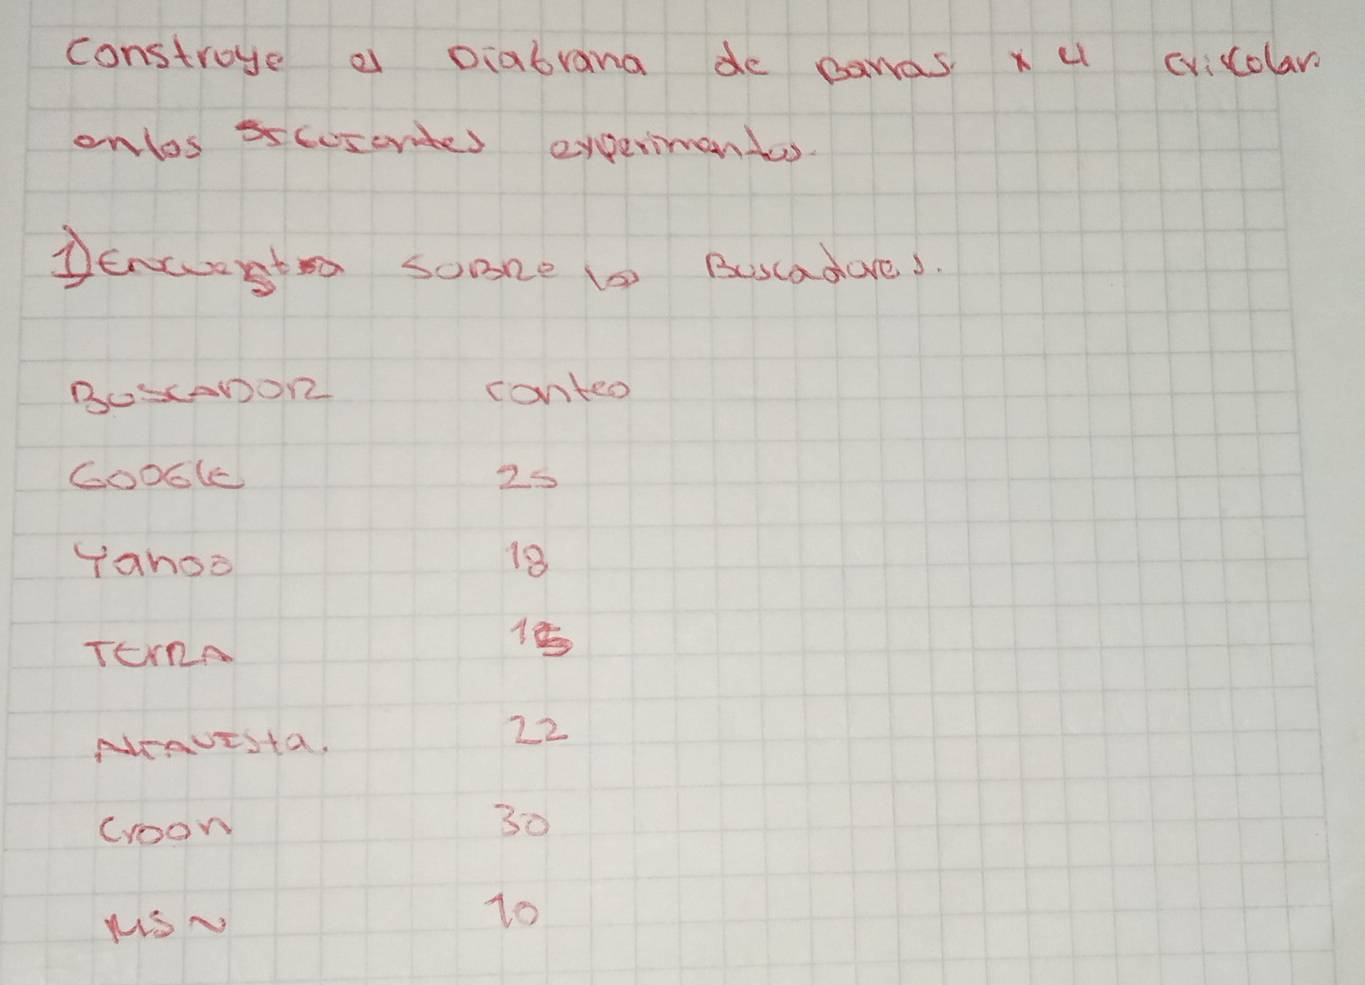 Construye el Diabrana de Barras x el Cricolar
en los siguientes experimentos.
1) Encuesta sobre los Buscadores.
Buscador conteo
Google 25
Yahoo 18
Terra 15
Altavista. 22
Croon 30
MSN 10